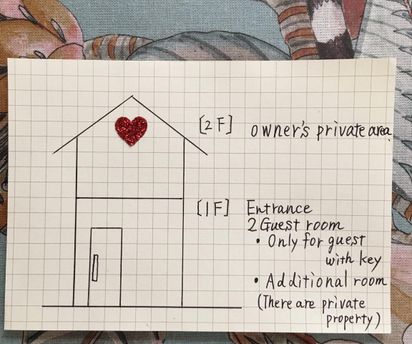 [2F] owner's private area
[1F] Entrance
2 Guest room
• Only for guest
with key
• Additional room
(There are private
property)